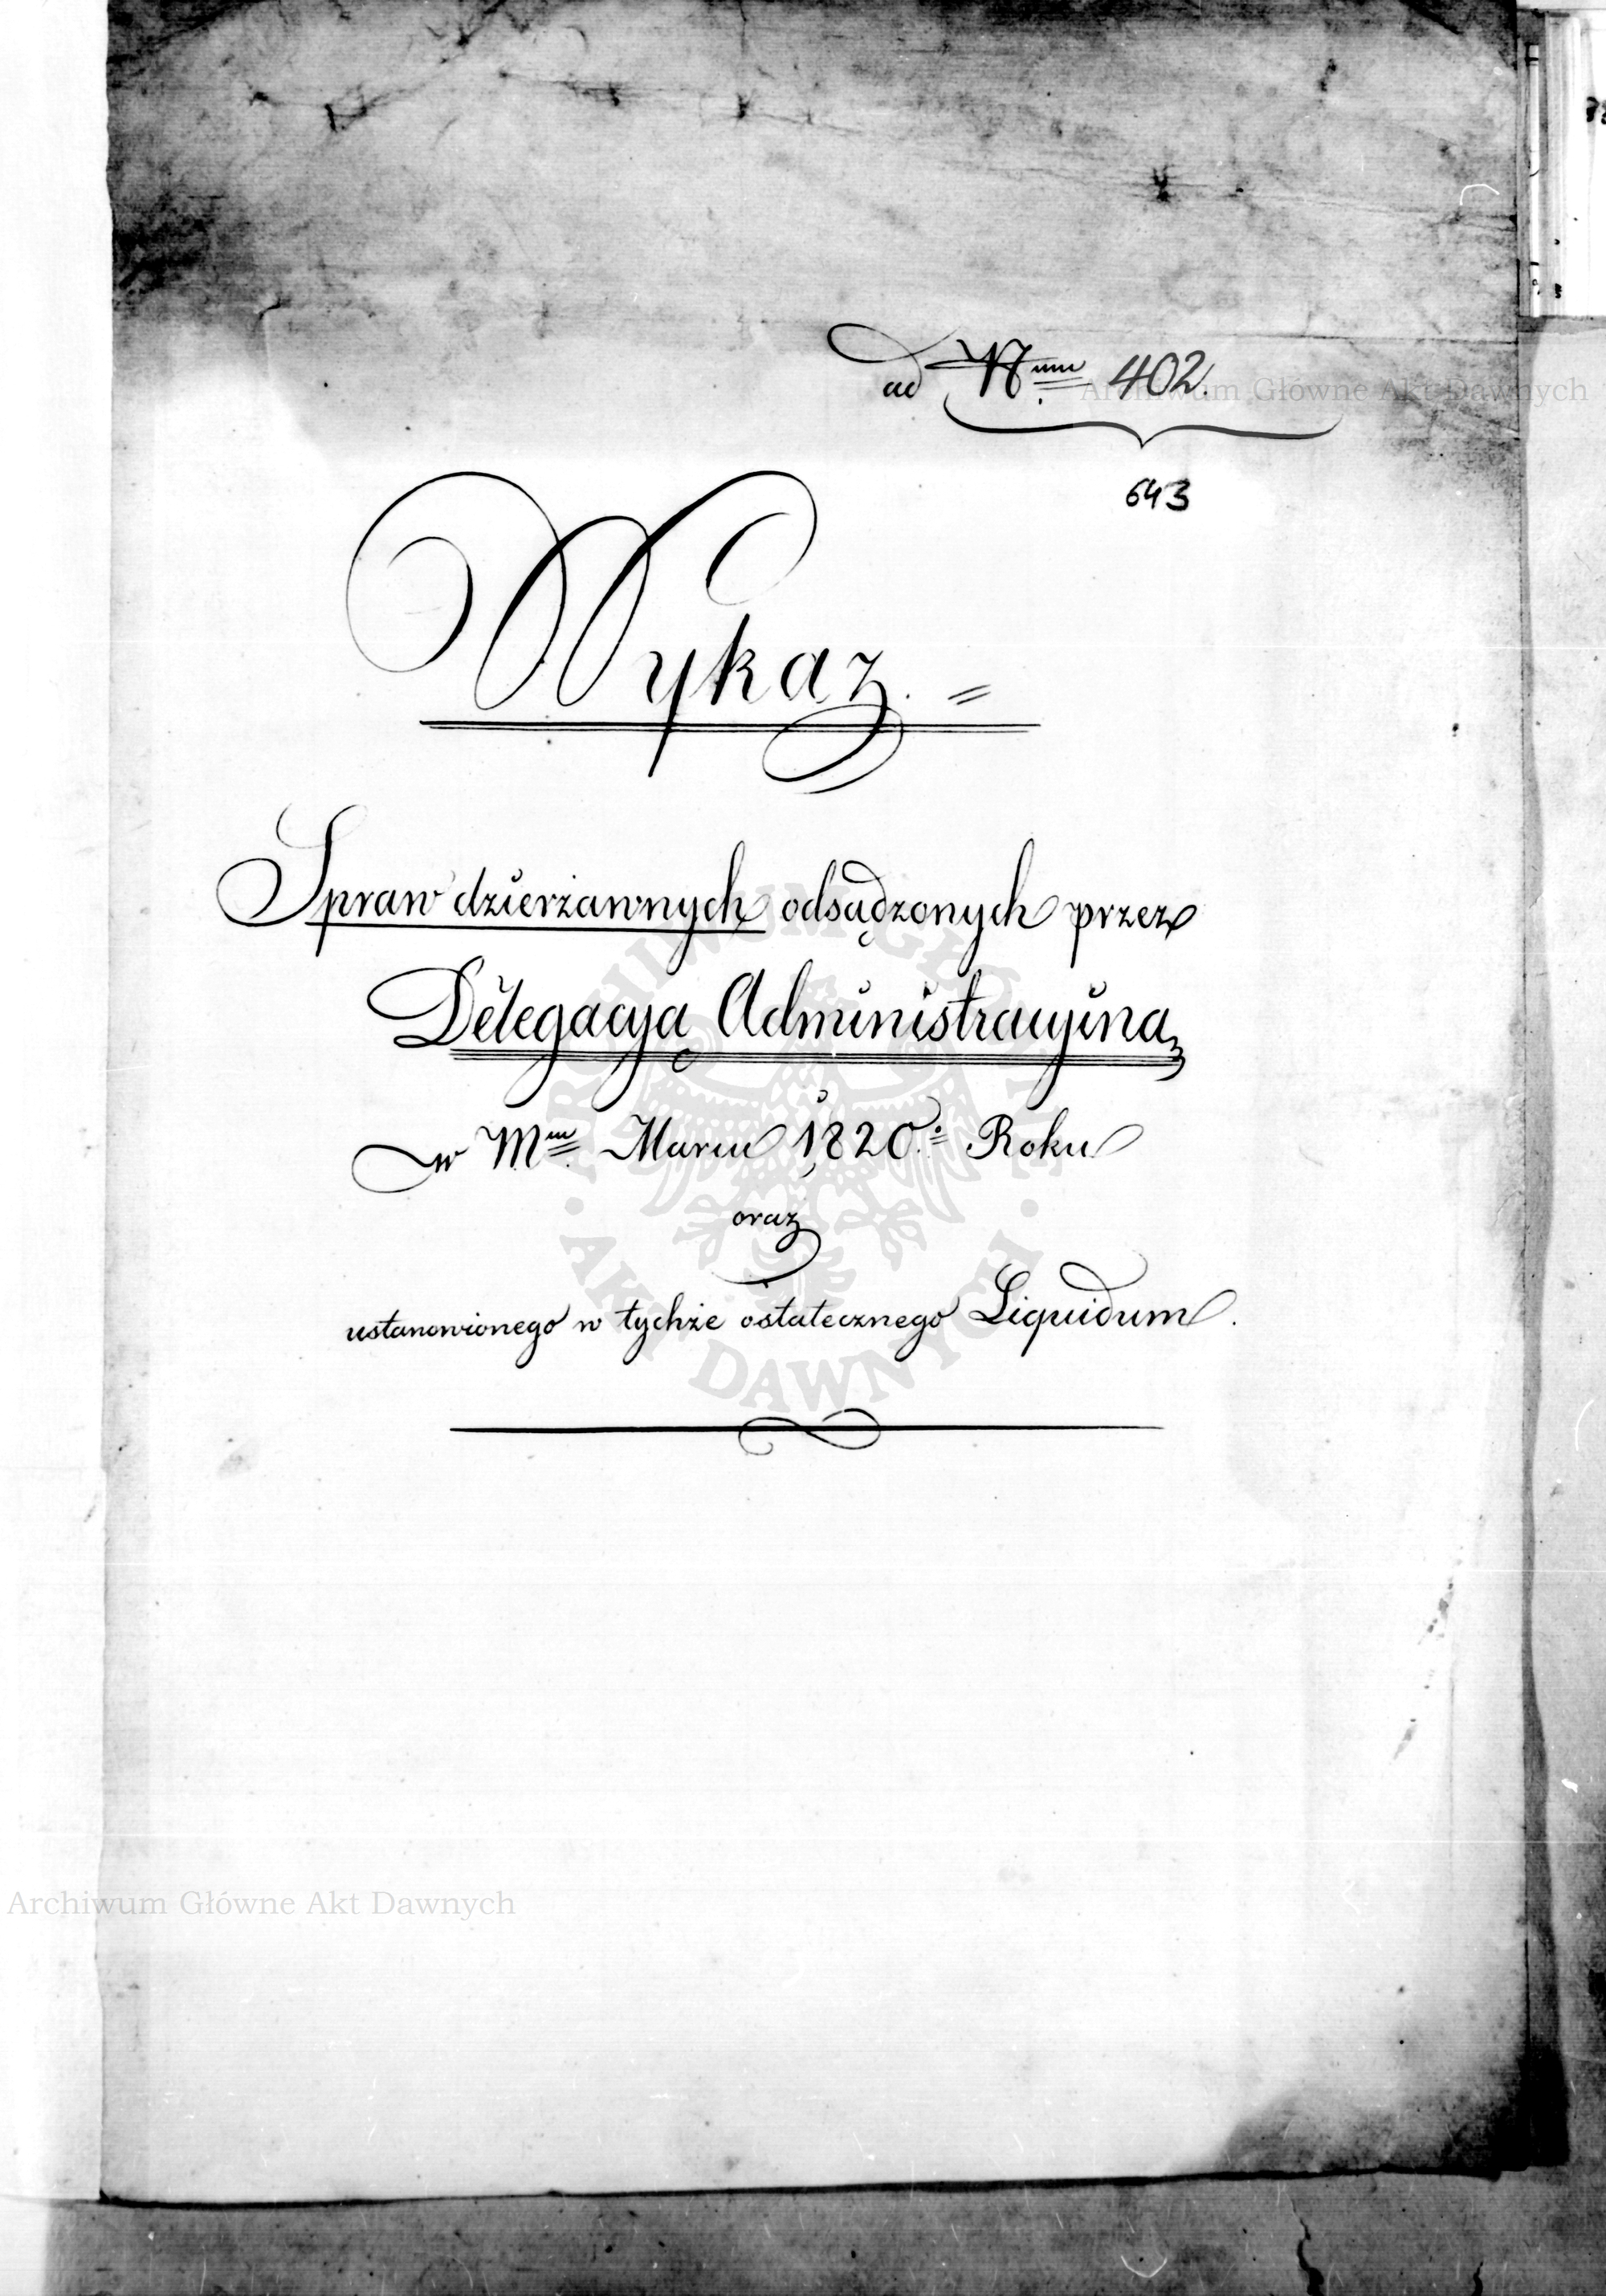 ad Nrum 402.
643
Wykaz. =
Spraw dzierżawnych odsądzonych przez
Delegacyą Administracyiną
w Mcu Marcu 1820. Roku
oraz
ustanowionego w tychże ostatecznego Liquidum.
Archiwum Główne Akt Dawnych
ARCHIWUM GŁÓWNE
· AKT DAWNYCH ·
Archiwum Główne Akt Dawnych